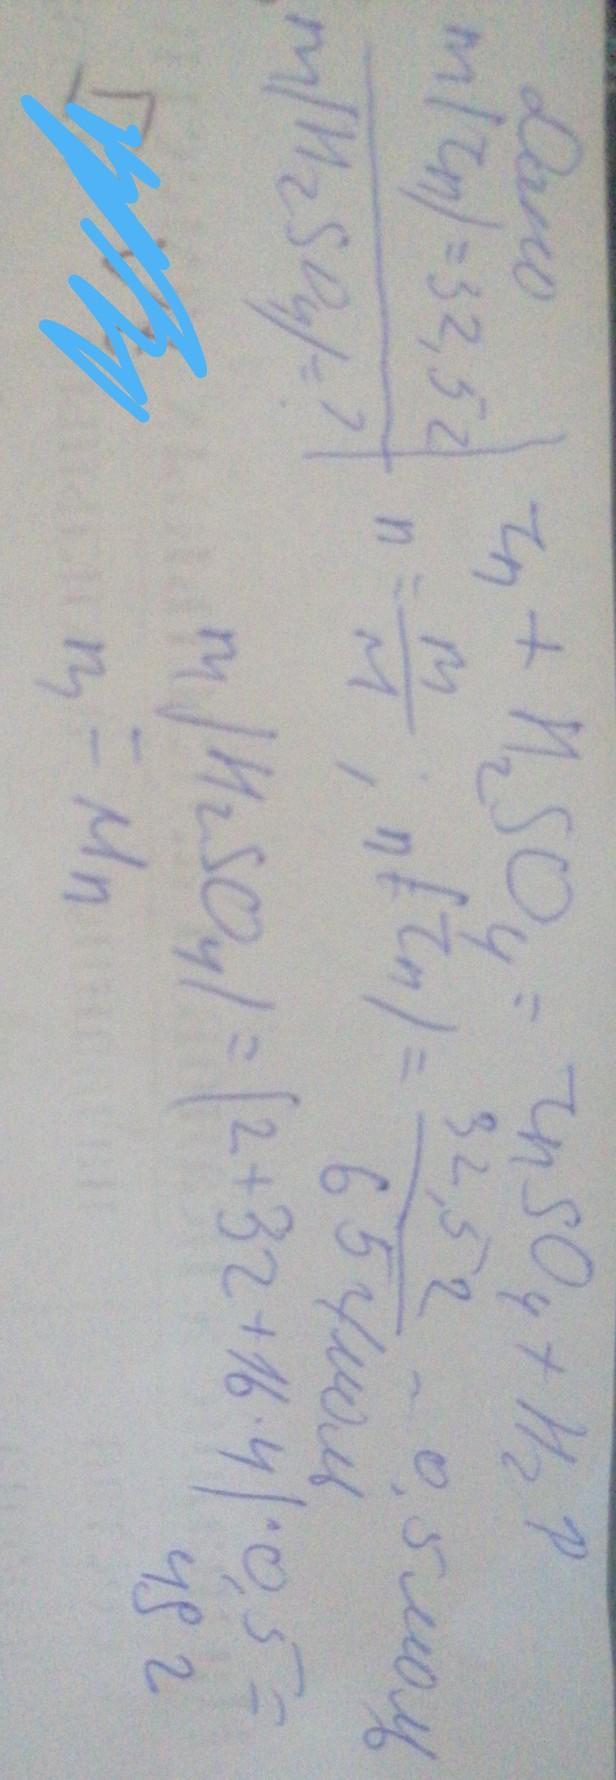 Дано
m(Zn)=32,5г
m(H₂SO₄)=?
Zn + H₂SO₄ = ZnSO₄ + H₂
n = m/M ; n(Zn) = 32,5г / 65 г/моль - 0,5 моль
m(H₂SO₄) = (2+32+16·4)·0,5 =
49г
m = Mn